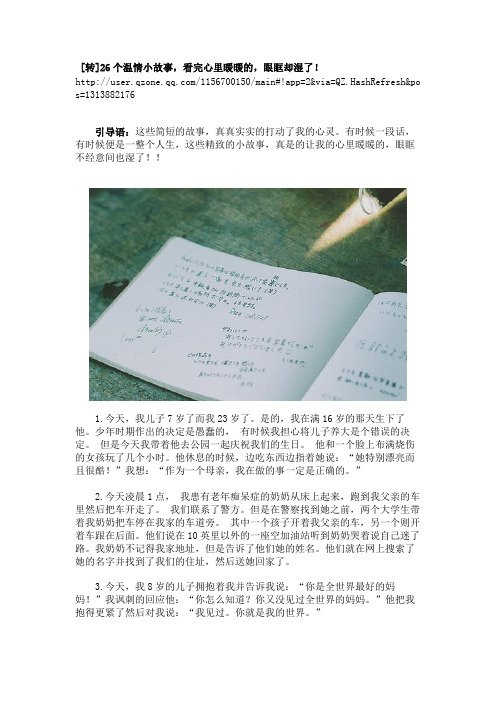 [转]26个温情小故事，看完心里暖暖的，眼眶却湿了！
http://user.qzone.qq.com/1156700150/main#!app=2&via=QZ.HashRefresh&po
s=1313882176
引导语：这些简短的故事，真真实实的打动了我的心灵。有时候一段话，
有时候便是一整个人生，这些精致的小故事，真是的让我的心里暖暖的，眼眶
不经意间也湿了！！
1.今天，我儿子7岁了而我23岁了。是的，我在满16岁的那天生下了
他。少年时期作出的决定是愚蠢的， 有时候我担心将儿子养大是个错误的决
定。 但是今天我带着他去公园一起庆祝我们的生日。 他和一个脸上布满烧伤
的女孩玩了几个小时。他休息的时候，边吃东西边指着她说：“她特别漂亮而
且很酷！”我想：“作为一个母亲，我在做的事一定是正确的。”
2.今天凌晨1点， 我患有老年痴呆症的奶奶从床上起来，跑到我父亲的车
里然后把车开走了。 我们联系了警方。但是在警察找到她之前，两个大学生带
着我奶奶把车停在我家的车道旁。 其中一个孩子开着我父亲的车，另一个则开
着车跟在后面。他们说在10英里以外的一座空加油站听到奶奶哭着说自己迷了
路。我奶奶不记得我家地址，但是告诉了他们她的姓名。他们就在网上搜索了
她的名字并找到了我们的住址，然后送她回家了。
3.今天，我8岁的儿子拥抱着我并告诉我说：“你是全世界最好的妈
妈！”我讽刺的回应他：“你怎么知道？你又没见过全世界的妈妈。”他把我
抱得更紧了然后对我说：“我见过。你就是我的世界。”